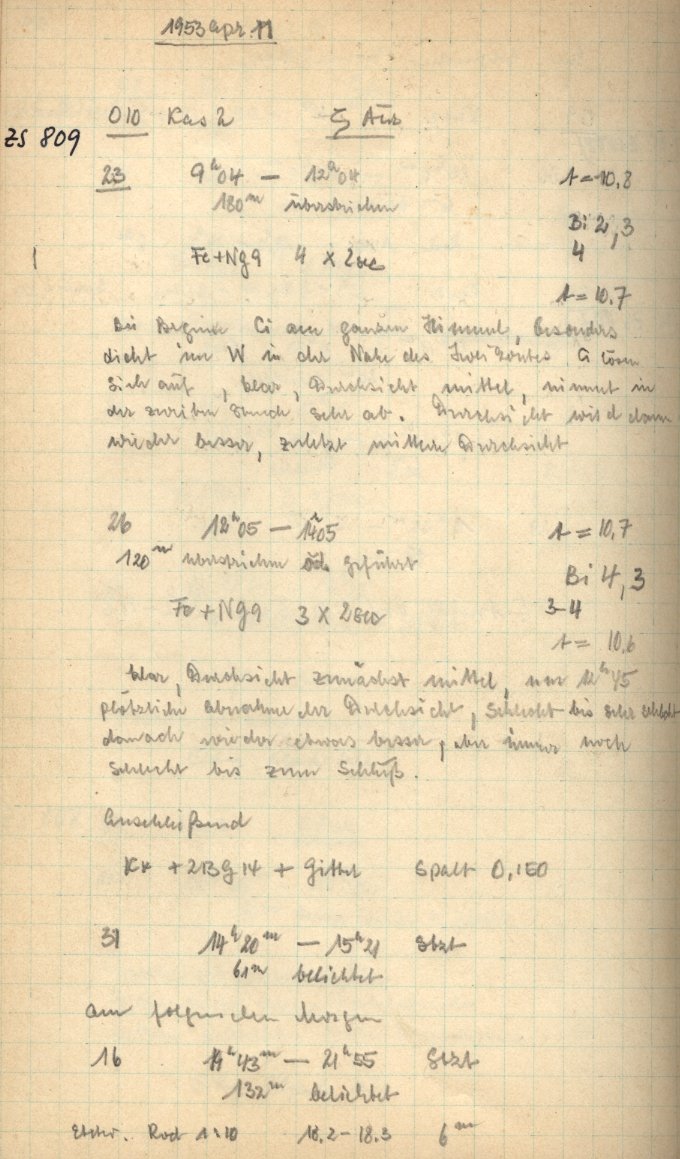 1953 Apr. 11
010 Kas 2 ζ Aur
ZS 809
23 9ʰ04 — 12ʰ04 t = 10,8
180ᵐ überstrichen Bi 2,3
4
1 Fe+Ng9 4 x 2sec
t = 10,7
Bei Beginn Ci am ganzen Himmel, besonders
dicht im W in der Nähe des Horizontes Ci lösen
sich auf, klar, Durchsicht mittel, nimmt in
der zweiten Stunde sehr ab. Durchsicht wird dann
wieder besser, zuletzt mittlere Durchsicht
26 12ʰ05 — 14ʰ05 t = 10,7
120ᵐ überstrichen geführt
Bi 4,3
Fe + Ng9 3 x 2sec 3-4
t = 10,6
klar, Durchsicht zunächst mittel, um 12ʰ45
plötzliche Abnahme der Durchsicht, schlecht bis sehr schlecht
danach wieder etwas besser, aber immer noch
schlecht bis zum Schluß.
Anschließend
KK + 213G14 + Gitter Spalt 0,150
31 14ʰ20ᵐ — 15ʰ21 Stzt
61ᵐ belichtet
am folgenden Morgen
16 19ʰ43ᵐ — 21ʰ55 Stzt
132ᵐ belichtet
Entw. Rod 1:10 18.2–18.3 6ᵐ